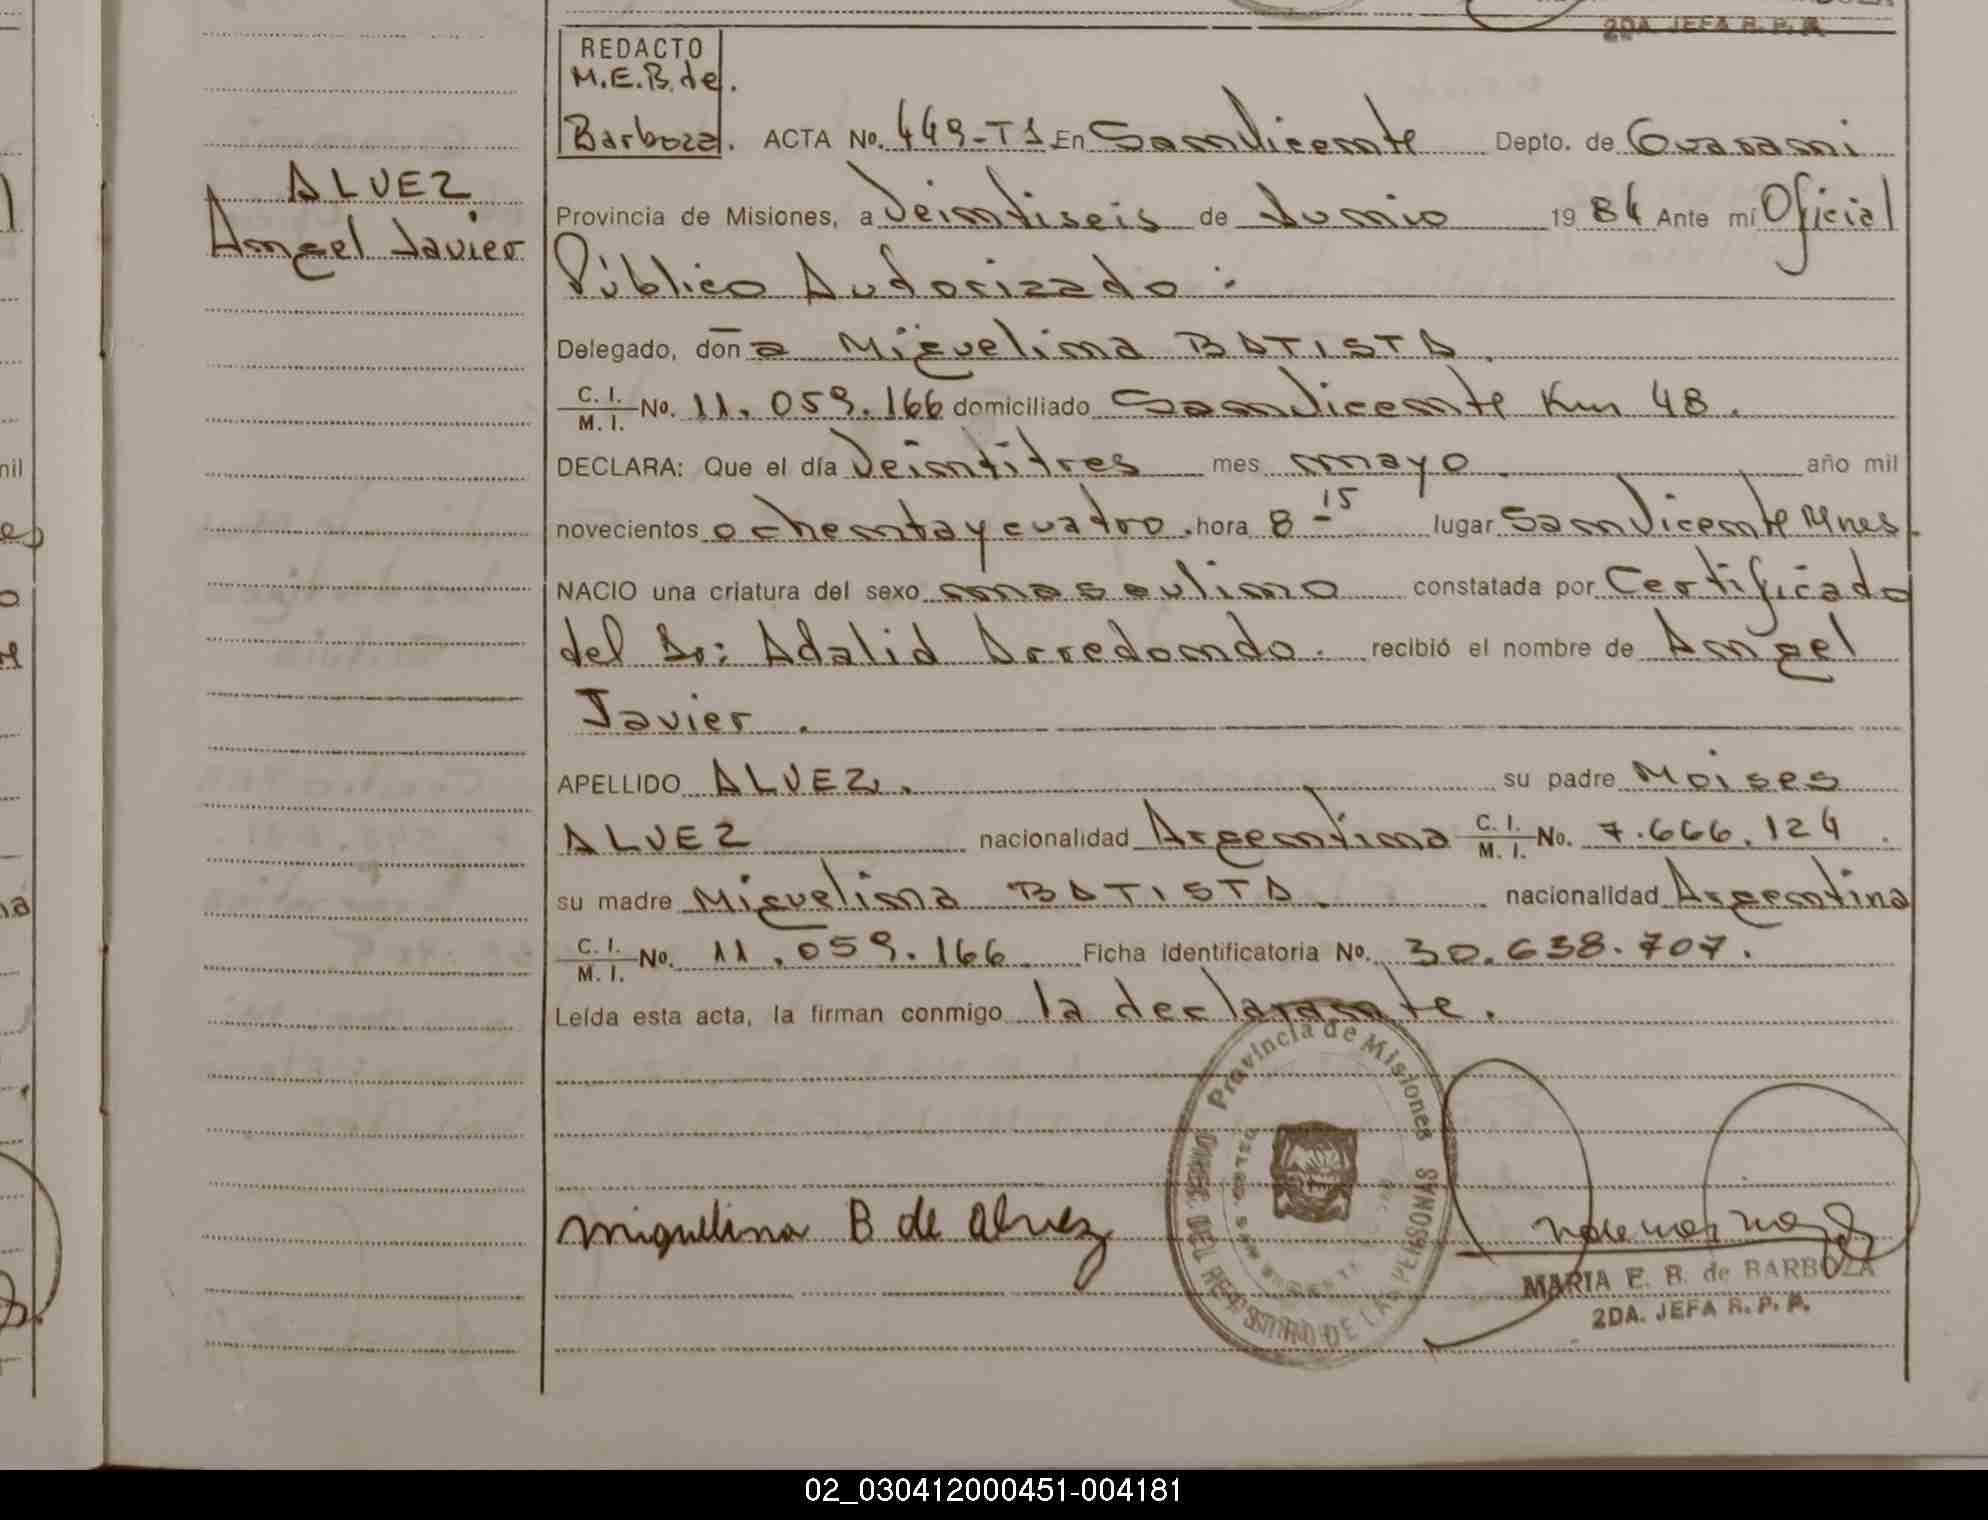 2DA. JEFA R. P. P.
REDACTO
M.E.B. de.
Barboza.
ACTA No. 449-T1 En San Vicente Depto. de Guarani
ALVEZ
Angel Javier
Provincia de Misiones, a Veintiseis de Junio 19 84 Ante mí Oficial
Público Autorizado:
Delegado, don a Miguelina BATISTA.
C. I. / M. I. No. 11.059.166 domiciliado San Vicente Km 48.
DECLARA: Que el día Veintitres mes mayo año mil
novecientos ochenta y cuatro. hora 8-15 lugar San Vicente Mnes.
NACIO una criatura del sexo masculino constatada por Certificado
del Dr: Adalid Arredondo. recibió el nombre de Angel
Javier.
APELLIDO ALVEZ. su padre Moises
ALVEZ nacionalidad Argentina C. I. / M. I. No. 7.666.124.
su madre Miguelina BATISTA. nacionalidad Argentina
C. I. / M. I. No. 11.059.166 Ficha identificatoria No. 30.638.707.
Leída esta acta, la firman conmigo la declarante.
Provincia de Misiones
DIREC. DEL REGISTRO DE LAS PERSONAS
miguelina B de alvez
MARIA E. B. de BARBOZA
2DA. JEFA R. P. P.
02_030412000451-004181